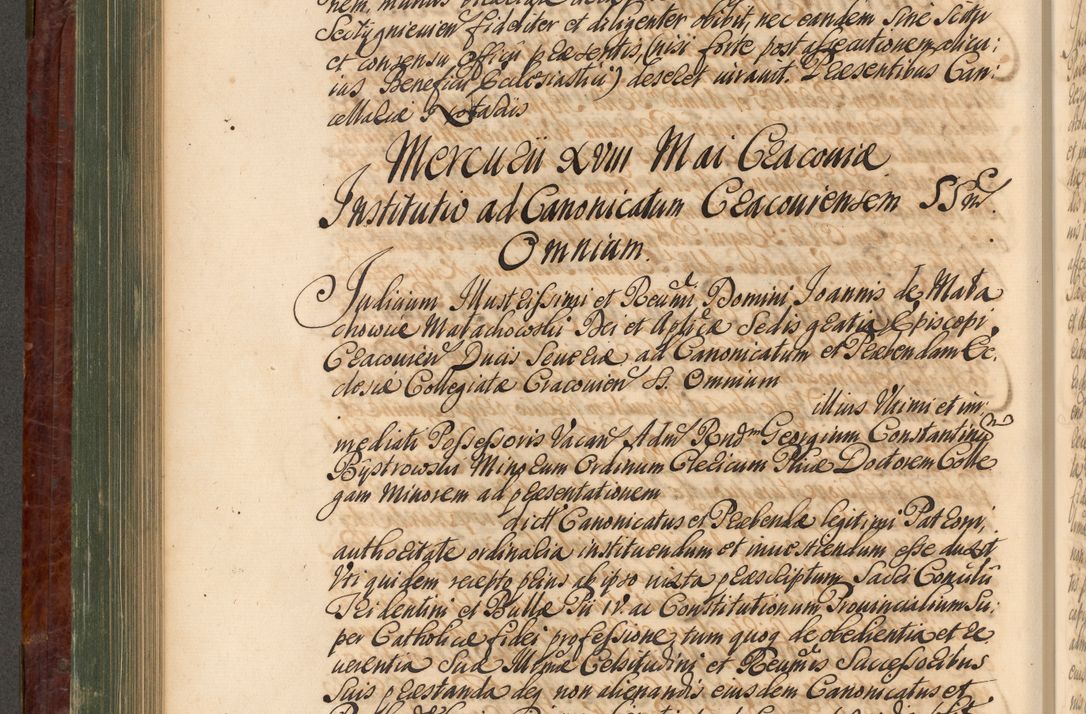 Sectygniewien fideliter et diligenter obibit, nec eandem sine scitu
et consensu officii praesentis, (nisi forte post assecutionem alicu:
ius Beneficii Ecclesiastici) deseret iuravit. Praesentibus Can:
cellariae Notariis
Mercurii XVIII Mai Cracoviae
Institutio ad Canonicatum Cracoviensem SS.
Omnium.
Judicium Illustrissimi et Reverendissimi Domini, Joannis de Mała
chowice Małachowski Dei et Aplicae Sedis gratia Episcopi
Cracovien Ducis Severiae ad Canonicatum et Praebendam Ec:
clesiae Collegiatae Cracovien SS. Omnium
illius Ultimi et im:
mediati Possessoris Vacan Adm Rndm Georgium Constantinum
Bystrowski Minorum Ordinum Clericum Phiae Doctorem Colle
gam Minorem ad praesentationem
dicti Canonicatus et Praebendae legitimi Patroni,
authoritate ordinaria instituendum et investiendum esse duxit
Uti quidem recepto prius ab ipso iuxta praescriptum Sacri Concilii
Tridentini et Bullae Pii IV. ac Constitutionum Provincialium su:
per Catholicae fidei professione, tum quoq de obedientia et re
verentia Suae Illmae Celsitudini et Reverendissimis Successoribus
Suis praestanda deq non alienandis eiusdem Canonicatus et